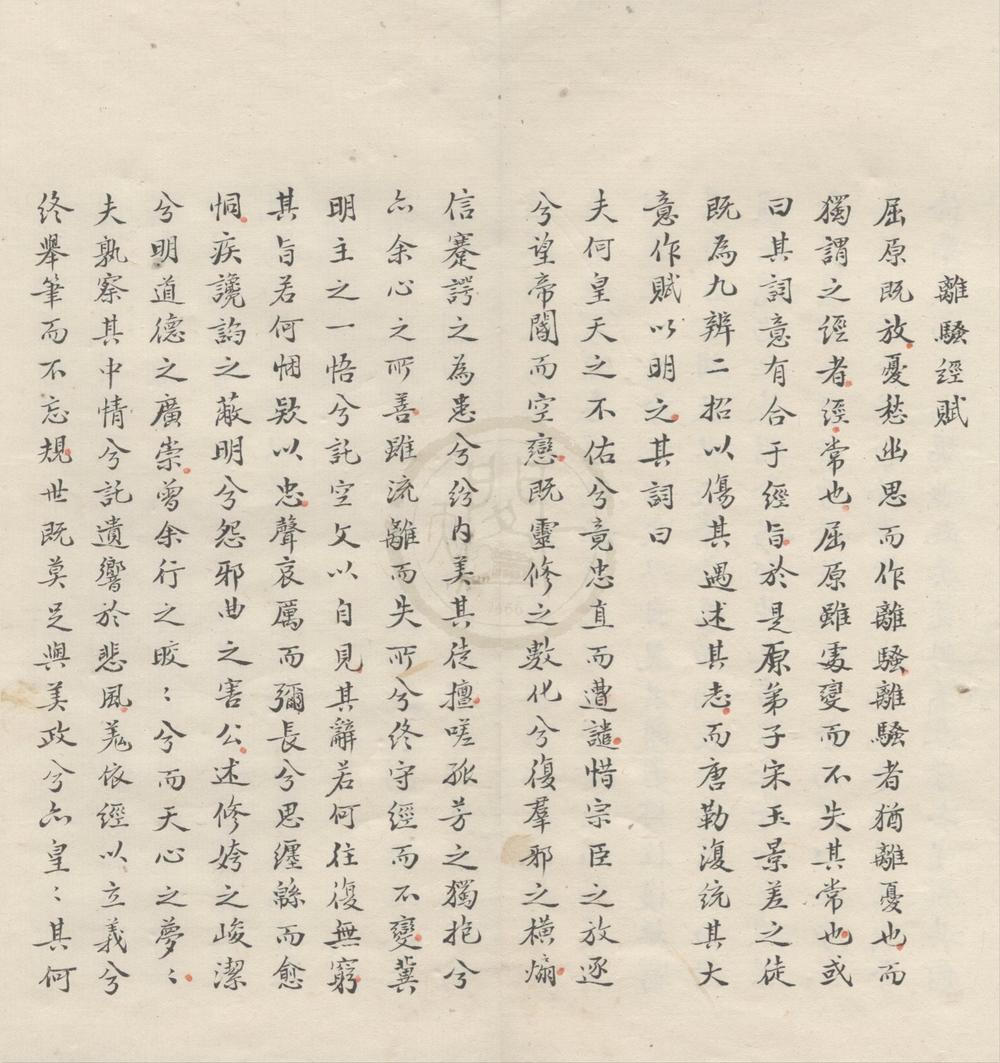 離騷經賦
屈原既放憂愁幽思而作離騷離騷者猶離憂也而
獨謂之經者經常也屈原雖處變而不失其常也或
曰其詞意有合于經旨於是原弟子宋玉景差之徒
既為九辨二招以傷其遇述其志而唐勒復統其大
意作賦以明之其詞曰
夫何皇天之不佑兮竟忠直而遭譴惜宗臣之放逐
兮望帝閽而空戀既靈修之數化兮復羣邪之橫煽
信蹇諤之為患兮紛內美其徒擅嗟孤芳之獨抱兮
亦余心之所善雖流離而失所兮終守經而不變冀
明主之一悟兮託空文以自見其辭若何往復無窮
其旨若何悃款以忠聲哀厲而彌長兮思纏緜而愈
恫疾讒諂之蔽明兮怨邪曲之害公述修姱之峻潔
兮明道德之廣崇曾余行之皎：兮而天心之夢：
夫孰察其中情兮託遺響於悲風羌依經以立義兮
終舉筆而不忘規世既莫足與美政兮亦皇：其何